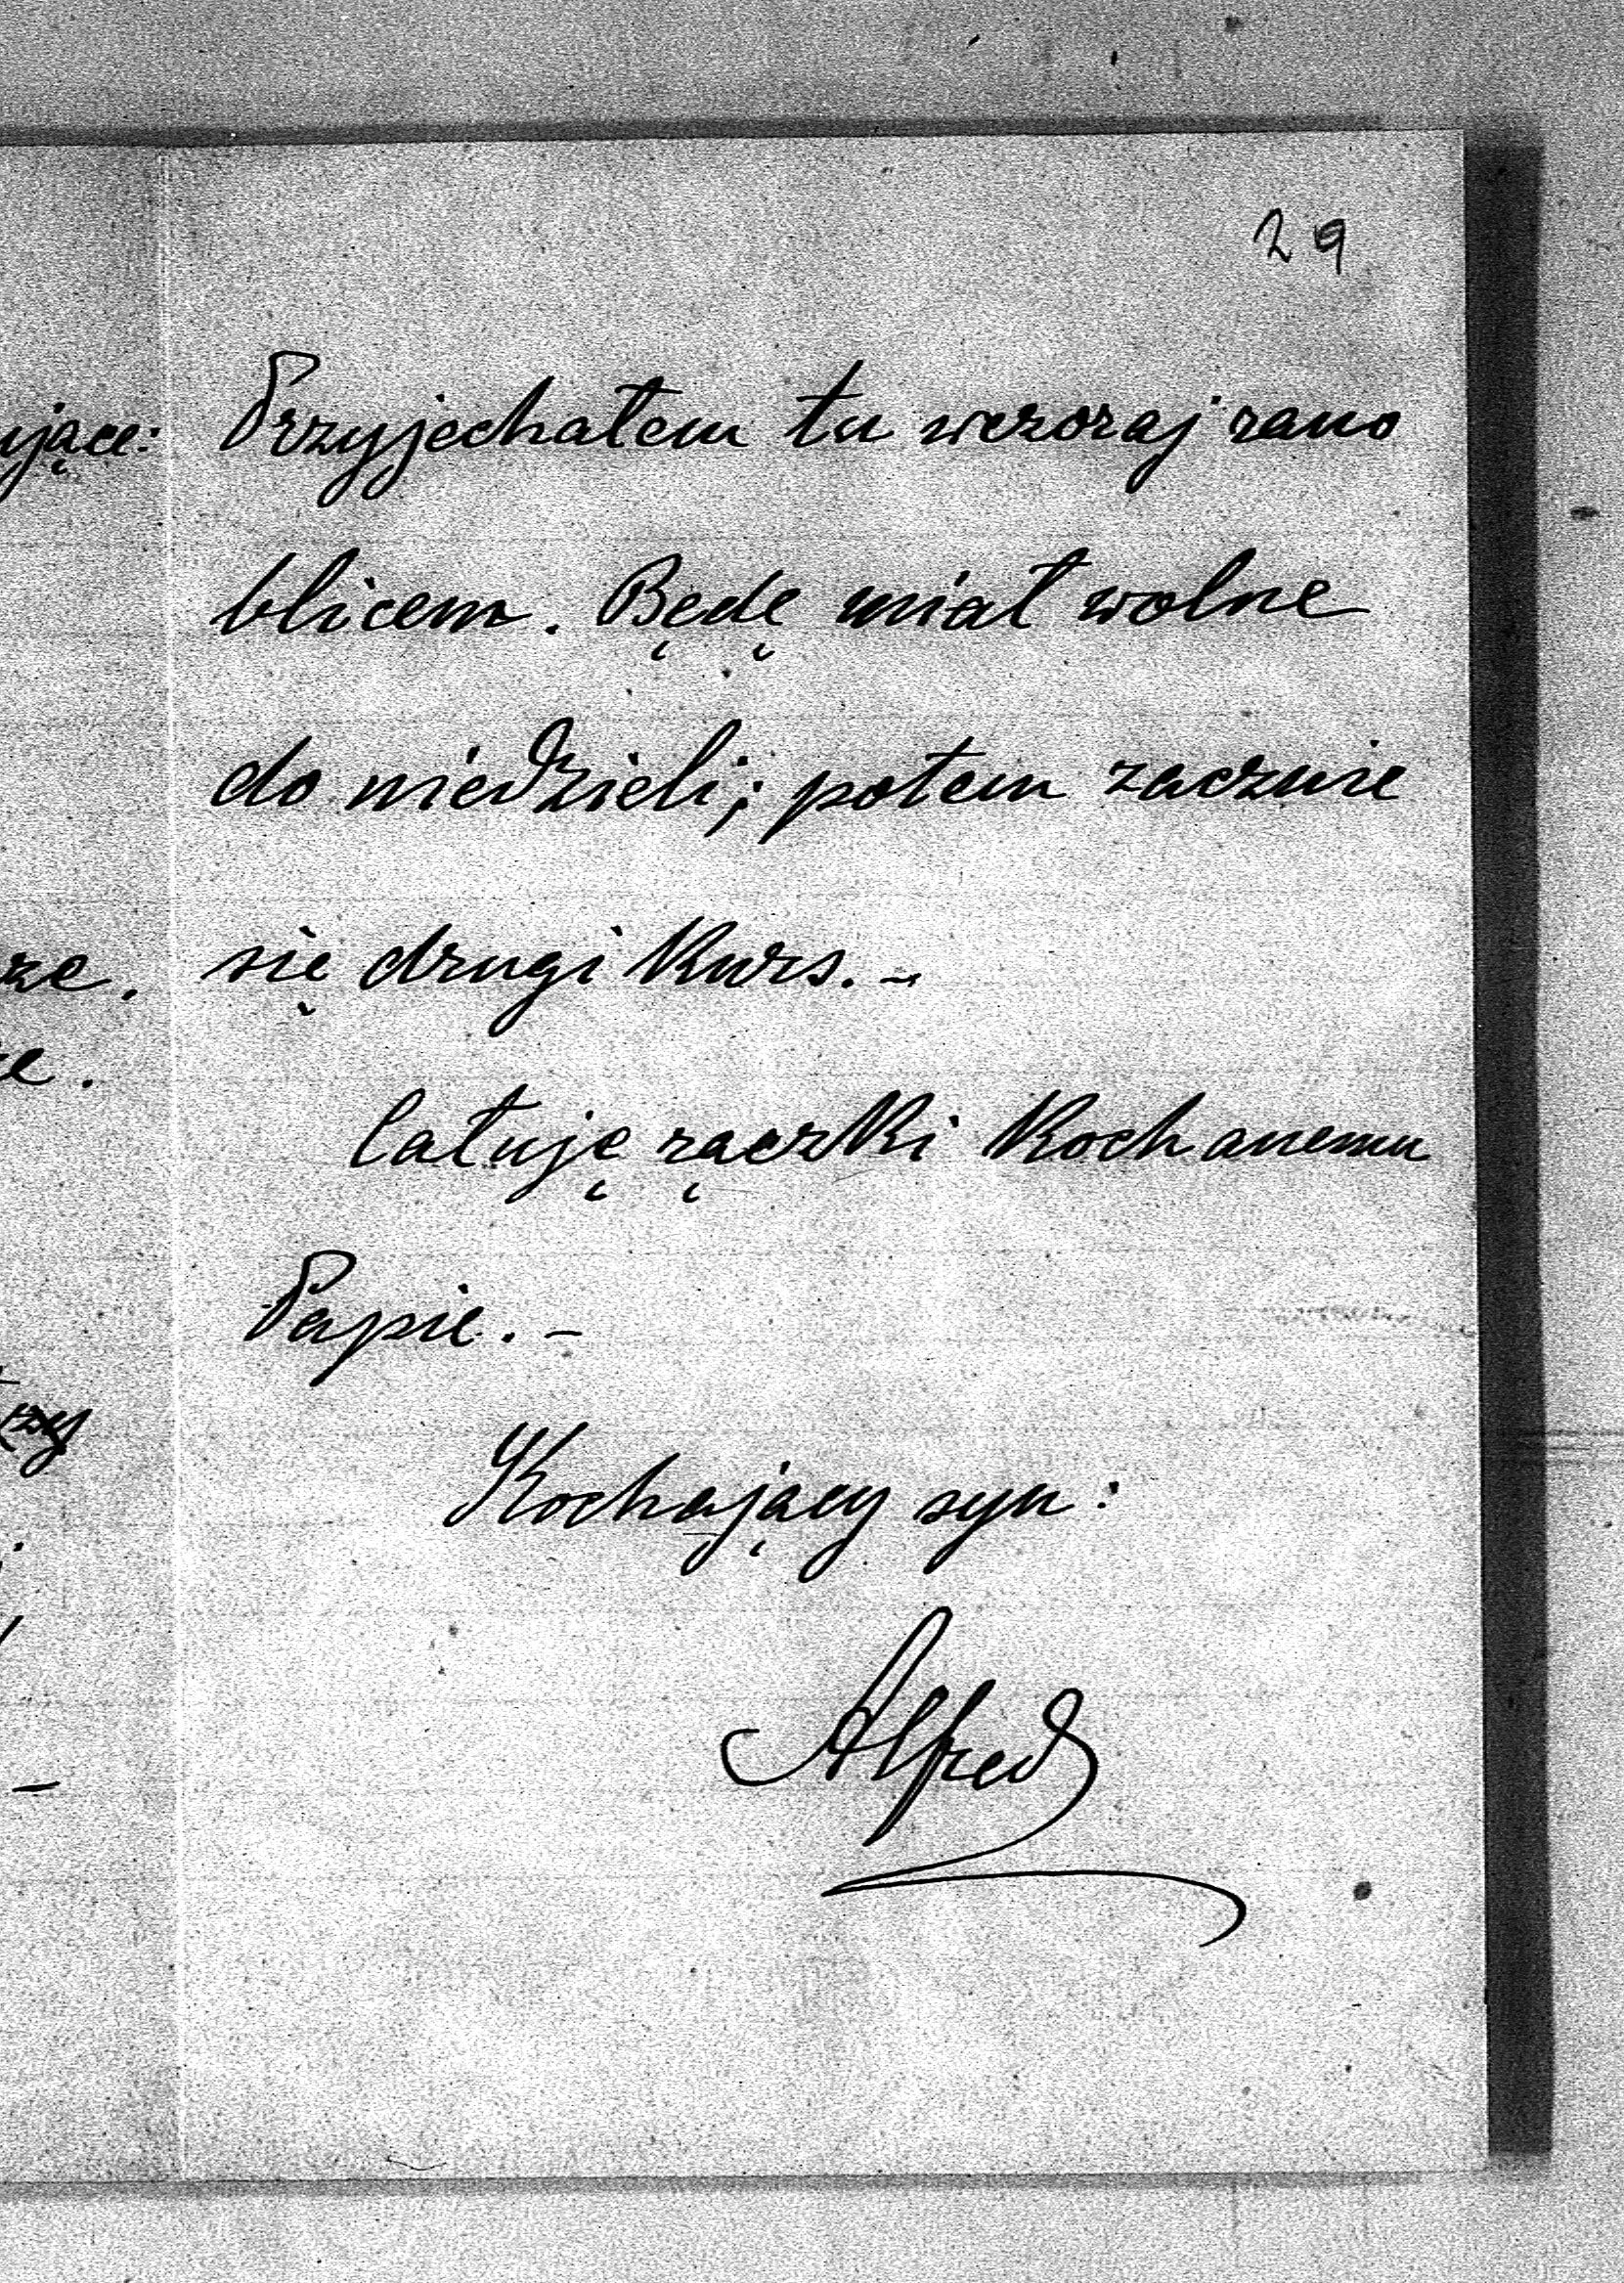 29
Przyjechałem tu wczoraj rano
blicem. Będę miał wolne
do niedzieli; potem zacznie
się drugi kurs. –
Całuję rączki Kochanemu
Papie. –
Kochający syn:
Alfred